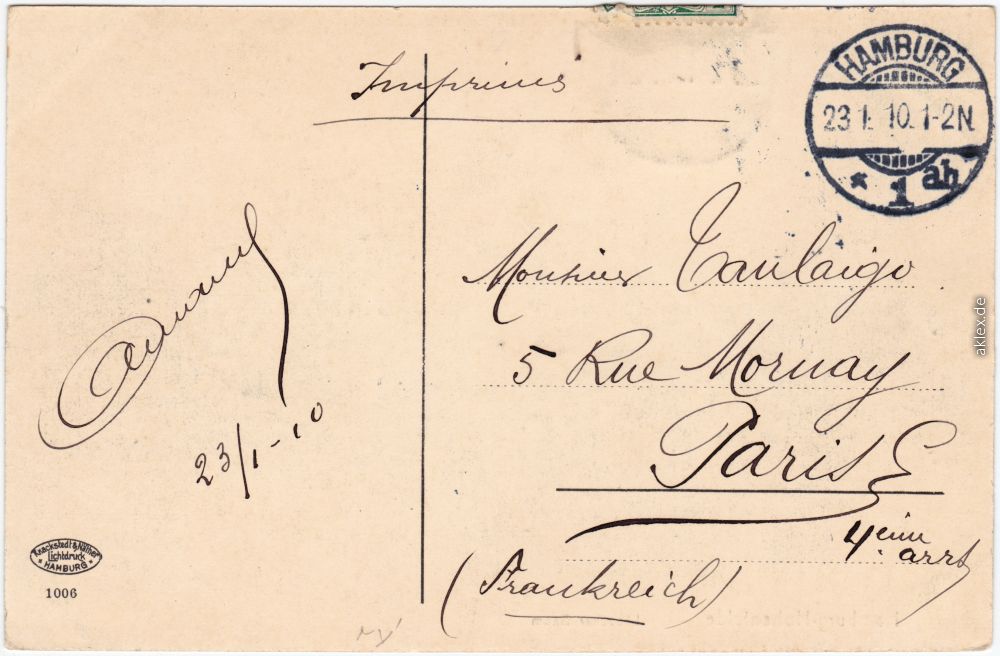 Imprimés
HAMBURG
23 1. 10. 1-2N.
* 1 ab
Monsieur
5 Rue Mornay
Paris E
4eim
arrt
(Frankreich)
23/1-10
Knackstedt & Näther
Lichtdruck
* HAMBURG *
1006
aklex.de